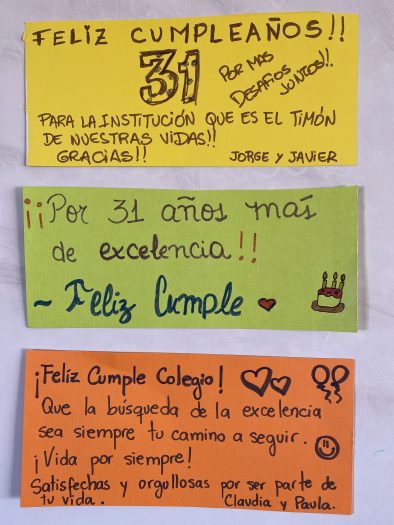 FELIZ CUMPLEAÑOS!!
31
POR MAS
DESAFIOS
JUNTOS!!
PARA LA INSTITUCIÓN QUE ES EL TIMÓN
DE NUESTRAS VIDAS!!
GRACIAS!!
JORGE Y JAVIER
¡¡Por 31 años más
de excelencia!!
~ Feliz Cumple
¡Feliz Cumple Colegio!
Que la búsqueda de la excelencia
sea siempre tu camino a seguir.
¡Vida por siempre!
Satisfechas y orgullosas por ser parte de
tu vida.
Claudia y Paula.